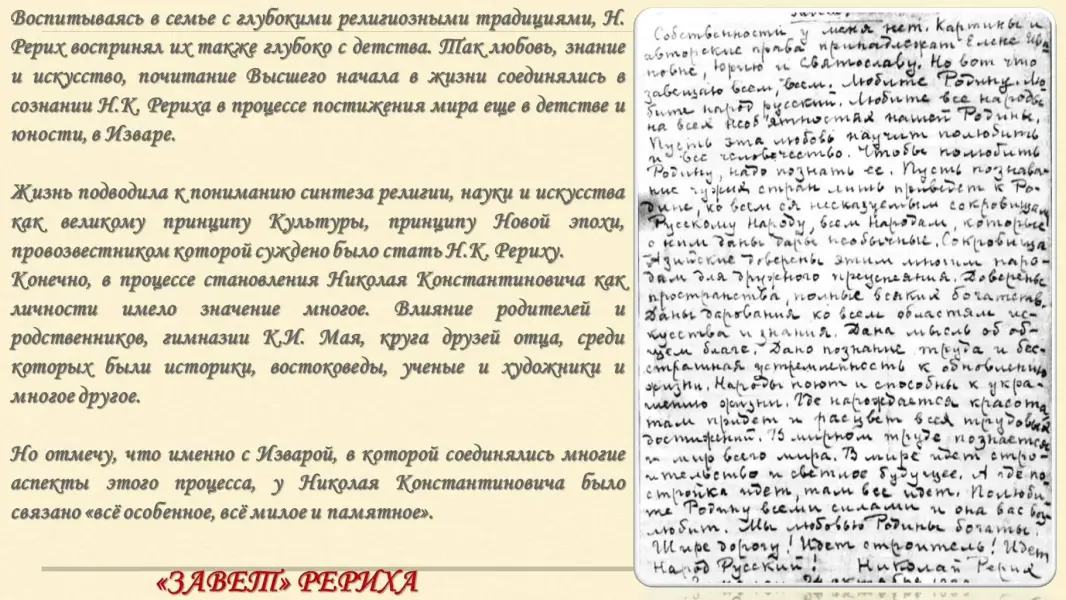 Воспитываясь в семье с глубокими религиозными традициями, Н.
Рерих воспринял их также глубоко с детства. Так любовь, знание
и искусство, почитание Высшего начала в жизни соединялись в
сознании Н.К. Рериха в процессе постижения мира еще в детстве и
юности, в Изваре.
Жизнь подводила к пониманию синтеза религии, науки и искусства
как великому принципу Культуры, принципу Новой эпохи,
провозвестником которой суждено было стать Н.К. Рериху.
Конечно, в процессе становления Николая Константиновича как
личности имело значение многое. Влияние родителей и
родственников, гимназии К.И. Мая, круга друзей отца, среди
которых были историки, востоковеды, ученые и художники и
многое другое.
Но отмечу, что именно с Изварой, в которой соединялись многие
аспекты этого процесса, у Николая Константиновича было
связано «всё особенное, всё милое и памятное».
«ЗАВЕТ» РЕРИХА
Собственности у меня нет. Картины и
авторские права принадлежат Елене Ива-
новне, Юрию и Святославу. Но вот что
завещаю всем, всем. Любите Родину. Лю-
бите народ русский. Любите все народы
на всех необъятностях нашей Родины.
Пусть эта любовь научит полюбить
и все человечество. Чтобы полюбить
Родину, надо познать ее. Пусть познава-
ние чужих стран лишь приведет к Ро-
дине, ко всем ея несказуемым сокровищам.
Русскому народу, всем народам, которые
с ним даны дары необычные. Сокровища
Азийские доверены этим многим наро-
дам для дружного преуспеяния. Доверены
пространства, полные всяких богатств.
Даны дарования ко всем областям ис-
кусства и знания. Дана мысль об об-
щем благе. Дано познание труда и бес-
страшная устремленность к обновлению
жизни. Народы поют и способны к укра-
шению жизни. Где нарождается красота,
там придет и расцвет всех трудовых
достижений. В мирном труде познается
и мир всего мира. В мире идет стро-
ительство и светлое будущее. А где по-
стройка идет, там все идет. Полюби-
те Родину всеми силами и она вас воз-
любит. Мы любовью Родины богаты.
Шире дорогу! Идет строитель! Идет
Народ Русский! Николай Рерих
24 октября